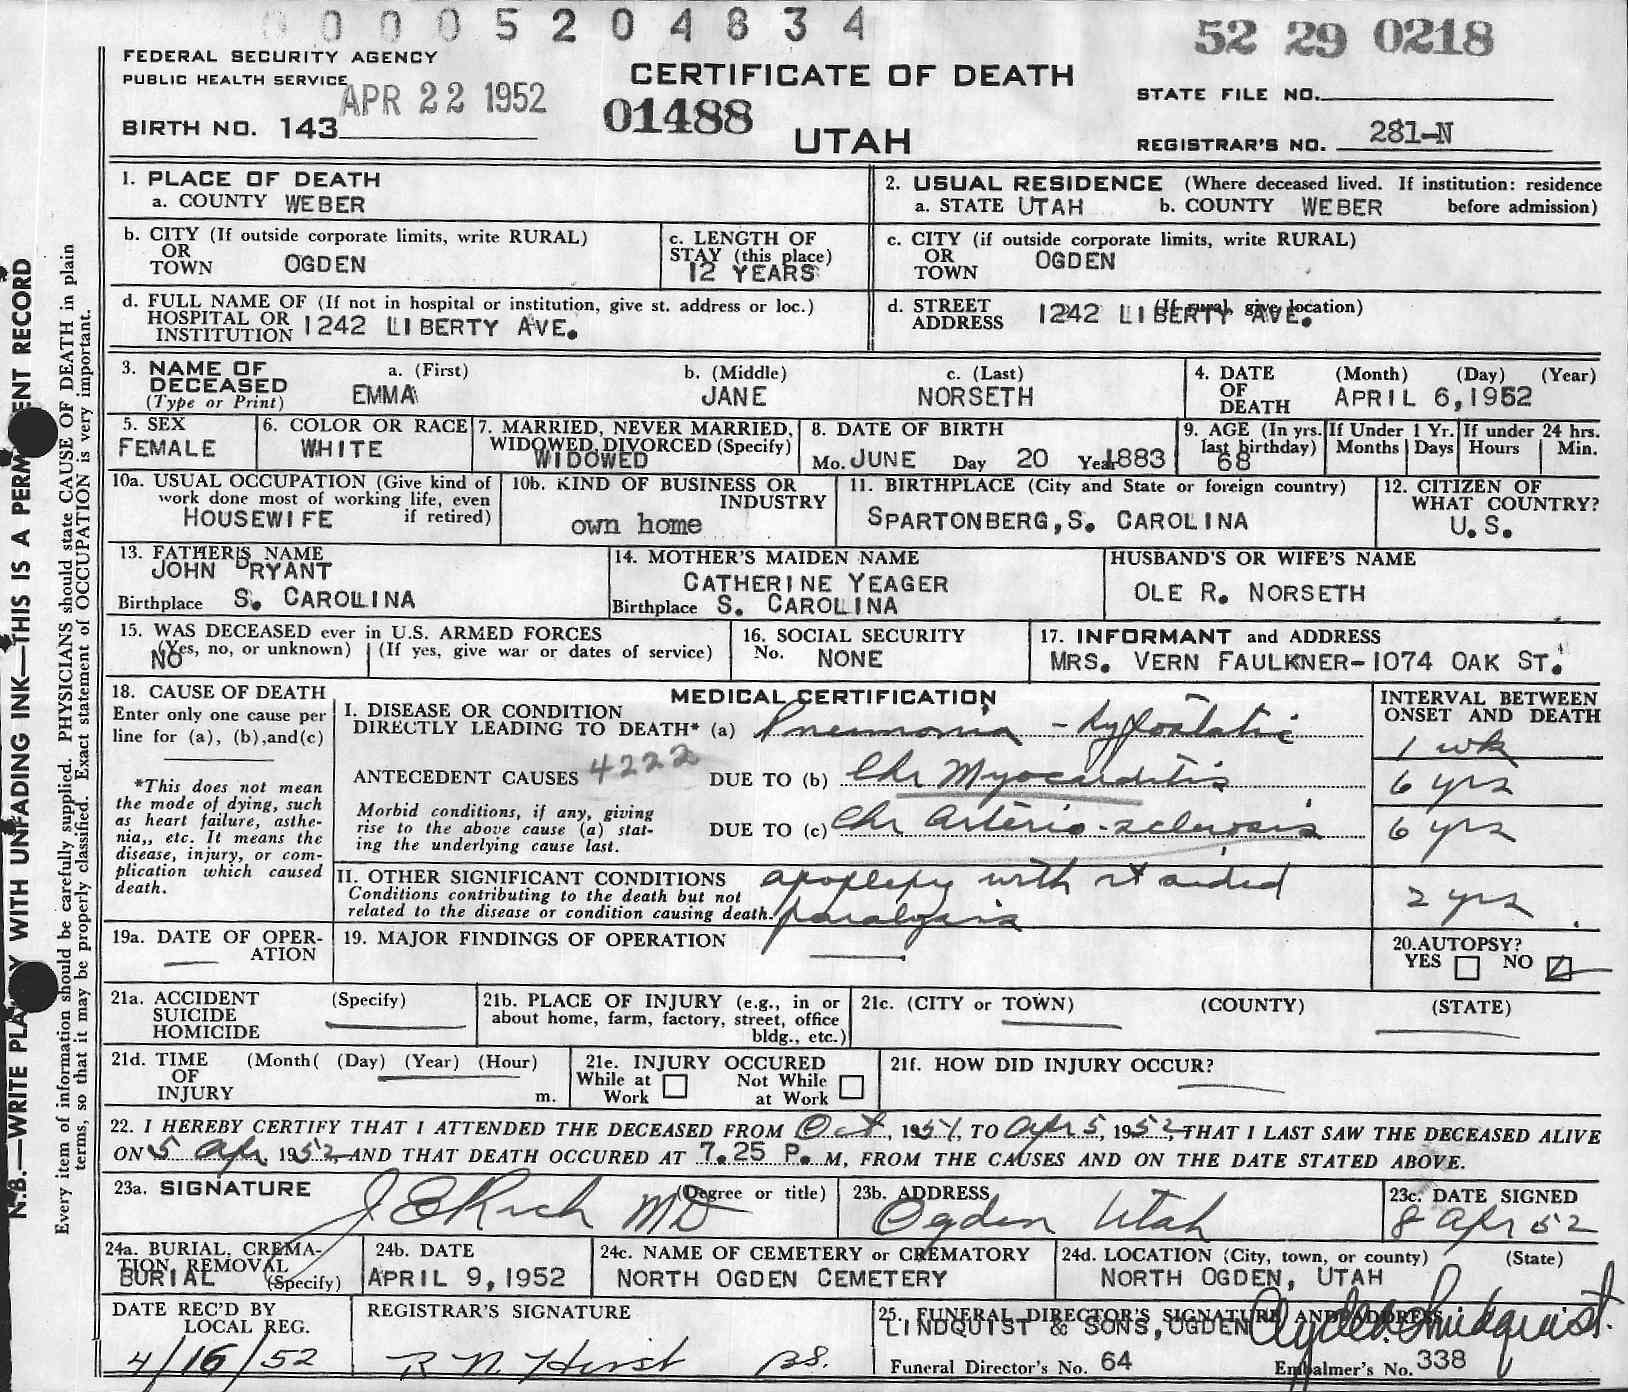 0 0 0 0 5 2 0 4 8 3 4
52 29 0218
FEDERAL SECURITY AGENCY
PUBLIC HEALTH SERVICE
APR 22 1952
CERTIFICATE OF DEATH
01488
UTAH
STATE FILE NO.
BIRTH NO. 143
REGISTRAR'S NO. 281-N
1. PLACE OF DEATH
a. COUNTY WEBER
2. USUAL RESIDENCE (Where deceased lived. If institution: residence
a. STATE UTAH b. COUNTY WEBER before admission)
b. CITY (If outside corporate limits, write RURAL)
OR
TOWN OGDEN
c. LENGTH OF
STAY (this place)
12 YEARS
c. CITY (if outside corporate limits, write RURAL)
OR
TOWN OGDEN
d. FULL NAME OF (If not in hospital or institution, give st. address or loc.)
HOSPITAL OR
INSTITUTION 1242 LIBERTY AVE.
d. STREET (If rural, give location)
ADDRESS 1242 LIBERTY AVE.
3. NAME OF
DECEASED
(Type or Print)
a. (First) b. (Middle) c. (Last)
EMMA JANE NORSETH
4. DATE (Month) (Day) (Year)
OF
DEATH APRIL 6,1952
5. SEX
FEMALE
6. COLOR OR RACE
WHITE
7. MARRIED, NEVER MARRIED,
WIDOWED, DIVORCED (Specify)
WIDOWED
8. DATE OF BIRTH
Mo. JUNE Day 20 Year 1883
9. AGE (In yrs.
last birthday)
68
If Under 1 Yr.
Months Days
If under 24 hrs.
Hours Min.
10a. USUAL OCCUPATION (Give kind of
work done most of working life, even
HOUSEWIFE if retired)
10b. KIND OF BUSINESS OR
INDUSTRY
own home
11. BIRTHPLACE (City and State or foreign country)
SPARTONBERG,S. CAROLINA
12. CITIZEN OF
WHAT COUNTRY?
U.S.
13. FATHER'S NAME
JOHN BRYANT
Birthplace S. CAROLINA
14. MOTHER'S MAIDEN NAME
CATHERINE YEAGER
Birthplace S. CAROLINA
HUSBAND'S OR WIFE'S NAME
OLE R. NORSETH
15. WAS DECEASED ever in U.S. ARMED FORCES
(Yes, no, or unknown) (If yes, give war or dates of service)
NO
16. SOCIAL SECURITY
No. NONE
17. INFORMANT and ADDRESS
MRS. VERN FAULKNER-1074 OAK ST.
18. CAUSE OF DEATH
Enter only one cause per
line for (a), (b),and(c)
*This does not mean
the mode of dying, such
as heart failure, asthe-
nia,, etc. It means the
disease, injury, or com-
plication which caused
death.
MEDICAL CERTIFICATION
I. DISEASE OR CONDITION
DIRECTLY LEADING TO DEATH* (a) Pneumonia - hypostatic
ANTECEDENT CAUSES 4222 DUE TO (b) Chr Myocarditis
Morbid conditions, if any, giving
rise to the above cause (a) stat-
ing the underlying cause last.
DUE TO (c) Chr Arterio-sclerosis
II. OTHER SIGNIFICANT CONDITIONS
Conditions contributing to the death but not
related to the disease or condition causing death.
apoplexy with rt sided
paralysis
INTERVAL BETWEEN
ONSET AND DEATH
1 wk
6 yrs
6 yrs
2 yrs
19a. DATE OF OPER-
ATION
19. MAJOR FINDINGS OF OPERATION
20. AUTOPSY?
YES NO
21a. ACCIDENT (Specify)
SUICIDE
HOMICIDE
21b. PLACE OF INJURY (e.g., in or
about home, farm, factory, street, office
bldg., etc.)
21c. (CITY or TOWN) (COUNTY) (STATE)
21d. TIME (Month( (Day) (Year) (Hour)
OF
INJURY m.
21e. INJURY OCCURED
While at Not While
Work at Work
21f. HOW DID INJURY OCCUR?
22. I HEREBY CERTIFY THAT I ATTENDED THE DECEASED FROM Oct, 1951, TO Apr 5, 1952, THAT I LAST SAW THE DECEASED ALIVE
ON 5 Apr, 1952, AND THAT DEATH OCCURED AT 7.25 P. M, FROM THE CAUSES AND ON THE DATE STATED ABOVE.
23a. SIGNATURE (Degree or title)
J E Rich MD
23b. ADDRESS
Ogden Utah
23c. DATE SIGNED
8 Apr 52
24a. BURIAL, CREMA-
TION, REMOVAL
BURIAL (Specify)
24b. DATE
APRIL 9,1952
24c. NAME OF CEMETERY or CREMATORY
NORTH OGDEN CEMETERY
24d. LOCATION (City, town, or county) (State)
NORTH OGDEN, UTAH
DATE REC'D BY
LOCAL REG.
4/16/52
REGISTRAR'S SIGNATURE
R N Hirst BS.
25. FUNERAL DIRECTOR'S SIGNATURE AND ADDRESS
LINDQUIST & SONS,OGDEN Clyde Lindquist.
Funeral Director's No. 64 Embalmer's No. 338
N.B.—WRITE PLAINLY WITH UNFADING INK—THIS IS A PERMANENT RECORD
Every item of information should be carefully supplied. PHYSICIANS should state CAUSE OF DEATH in plain
terms, so that it may be properly classified. Exact statement of OCCUPATION is very important.